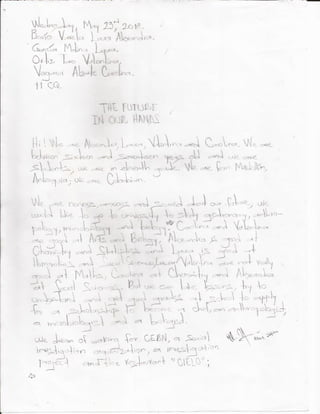 Wednesday, May 23rd, 2018.
Varela Laura Alexandra.
García Molina Laura.
Ortiz Leo Valentina.
Vásquez Carolina.
11 CQ.
THE FUTURE
IN OUR HANDS
Hi! We are Alexandra, Laura, Valentina and Carolina. We are
between sixteen and seventeen years old and we are
students, we are in eleventh grade. We are from Medellín,
Antioquia, we are Colombian.
We are nervous, anxious and scared about our future, we
would like to go to university to study gastronomy, anthro-
pology, and biology. Carolina and Valentina
are good at Arts and Biology, Alexandra is good at
Chemistry and and is good at
and Valentina are not really
good at Maths, Carolina at Chemistry and Alexandra
at Social Sciences. But we can take lessons, try to
understand and get good grades at school to apply
for a scholarship to become a chef, an anthropologist,
a and a biologist.
We dream of working for CERN, a social
investigation organization, an investigation
project and the restaurant "CIELO";